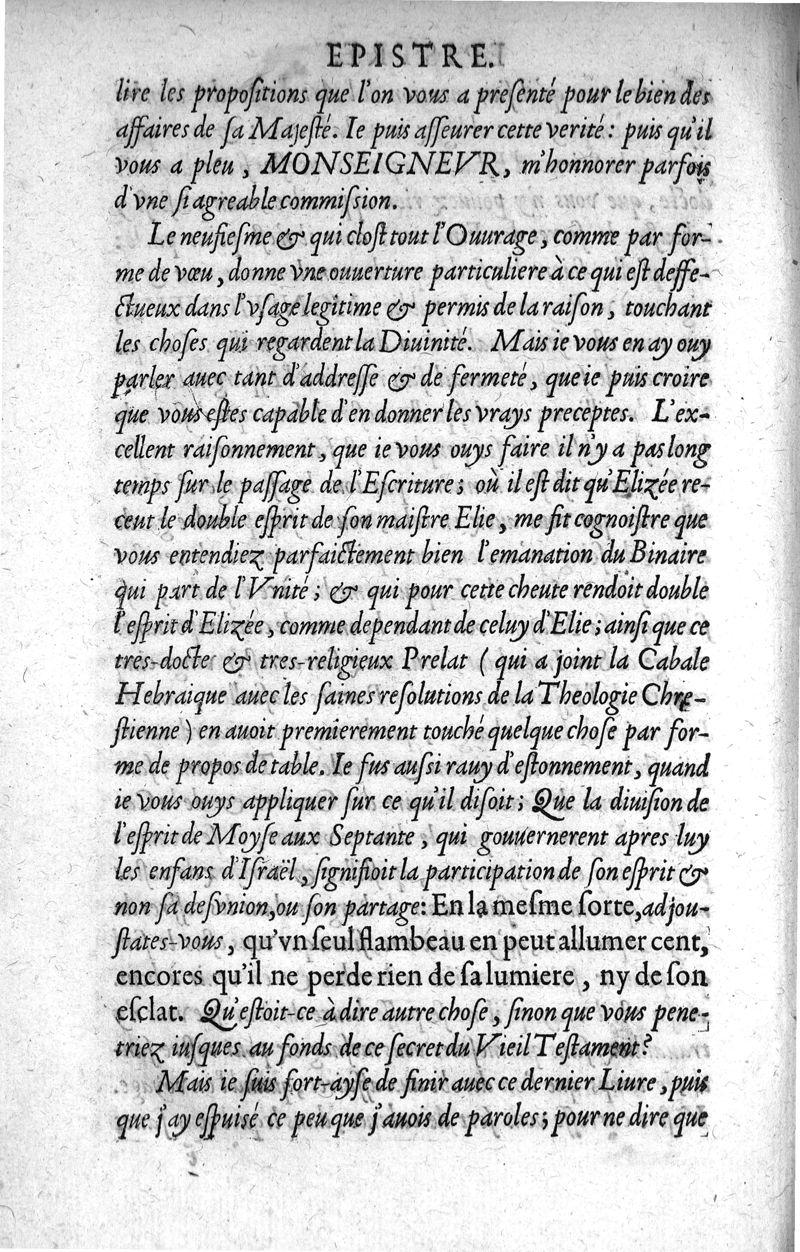 EPISTRE.
lire les propoſitions que l'on vous a preſenté pour le bien des
affaires de ſa Majeſté. Ie puis aſſeurer cette verité : puis qu'il
vous a pleu, MONSEIGNEVR, m'honnorer parfois
d'vne ſi agreable commiſſion.
Le neufieſme & qui cloſt tout l'Ouurage, comme par for-
me de vœu, donne vne ouuerture particuliere à ce qui eſt deffe-
ctueux dans l'vſage legitime & permis de la raiſon, touchant
les choſes qui regardent la Diuinité. Mais ie vous en ay ouy
parler auec tant d'addreſſe & de fermeté, que ie puis croire
que vous eſtes capable d'en donner les vrays preceptes. L'ex-
cellent raiſonnement, que ie vous ouys faire il n'y a pas long
temps ſur le paſſage de l'Eſcriture; où il eſt dit qu'Elizée re-
ceut le double eſprit de ſon maiſtre Elie, me fit cognoiſtre que
vous entendiez parfaictement bien l'emanation du Binaire
qui part de l'Vnité; & qui pour cette cheute rendoit double
l'eſprit d'Elizée, comme dependant de celuy d'Elie; ainſi que ce
tres-docte & tres-religieux Prelat ( qui a joint la Cabale
Hebraique auec les ſaines reſolutions de la Theologie Chre-
ſtienne ) en auoit premierement touché quelque choſe par for-
me de propos de table. Ie fus auſſi rauy d'eſtonnement, quand
ie vous ouys appliquer ſur ce qu'il diſoit; Que la diuiſion de
l'eſprit de Moyſe aux Septante, qui gouuernerent apres luy
les enfans d'Iſraël, ſignifioit la participation de ſon eſprit &
non ſa deſvnion, ou ſon partage: En la meſme ſorte, adjou-
ſtates-vous, qu'vn ſeul flambeau en peut allumer cent,
encores qu'il ne perde rien de ſa lumiere, ny de ſon
eſclat. Qu'eſtoit-ce à dire autre choſe, ſinon que vous pene-
triez iuſques au fonds de ce ſecret du Vieil Teſtament?
Mais ie ſuis fort-ayſe de finir auec ce dernier Liure, puis
que j'ay eſpuisé ce peu que j'auois de paroles; pour ne dire que